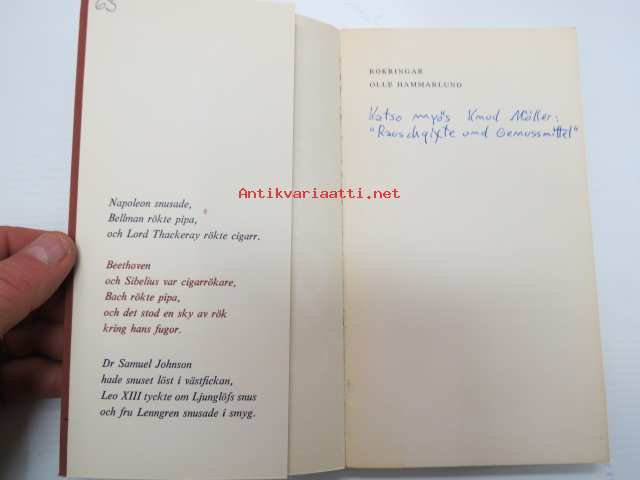 63
Napoleon snusade,
Bellman rökte pipa,
och Lord Thackeray rökte cigarr.
Beethoven
och Sibelius var cigarrökare,
Bach rökte pipa,
och det stod en sky av rök
kring hans fugor.
Dr Samuel Johnson
hade snuset löst i västfickan,
Leo XIII tyckte om Ljunglöfs snus
och fru Lenngren snusade i smyg.
RÖKRINGAR
OLLE HAMMARLUND
Katso myös Knud Möller:
"Rauschgifte und Genussmittel"
Antikvariaatti.net